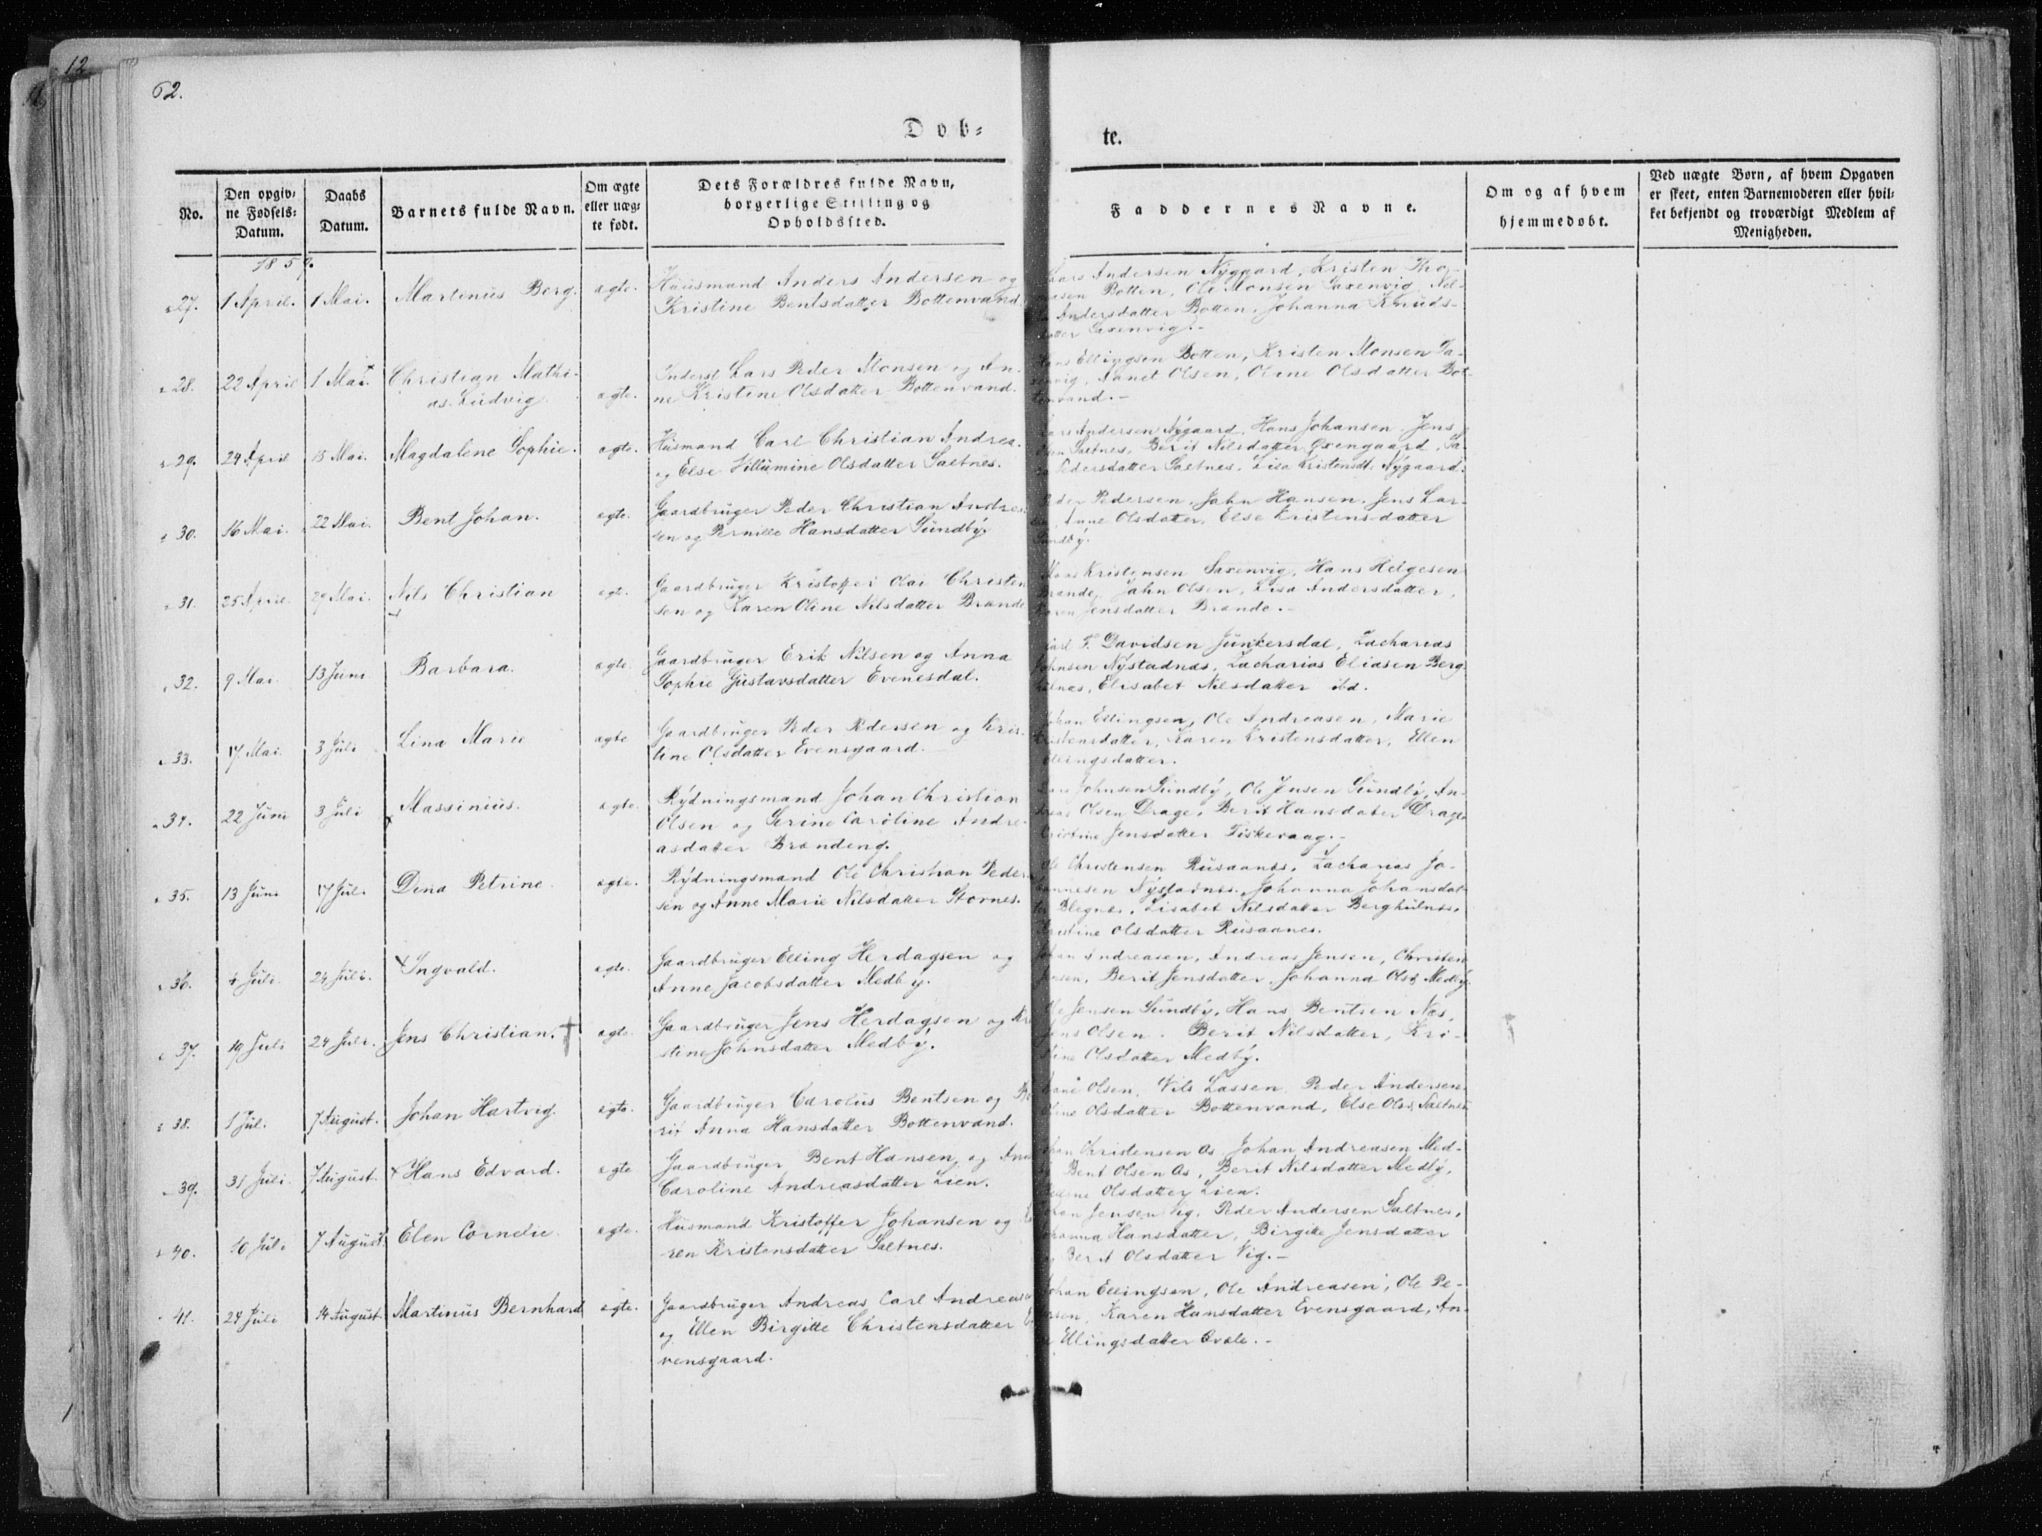 12
62.
Døb-
te.
No.
Den opgivne Fødsels-Datum.
Daabs Datum.
Barnets fulde Navn.
Om ægte eller uægte født.
Dets Forældres fulde Navn, borgerlige Stilling og Opholdssted.
Faddernes Navne.
Om og af hvem hjemmedøbt.
Ved uægte Børn, af hvem Opgaven er skeet, enten Barnemoderen eller hvilket bekjendt og troværdigt Medlem af Menigheden.
1859.
27. 1 April. 1 Mai. Martinus Berg. ægte. Huusmand Anders Andersen og
Kristine Bentsdatter Bottenvand
Andersen Nygaard, Kristen
Botten, Ole Monsen Saxenvig,
Andersdatter Botten, Johanna Knuds-
datter Saxenvig.-
28. 22 April 1 Mai. Christian Mathi-
as Ludvig. ægte. Inderst Lars Peder Monsen og An-
ne Kristine Olsdatter Bottenvand.
Ellingsen Botten, Kristen Monsen Sa-
xenvig, Olsen, Oline Olsdatter Bot-
tenvand.-
29. 24 April 15 Mai. Magdalene Sophie. ægte. Husmand Carl Christian Andrea.
og Else Villumine Olsdatter Saltnes.
Lars Andersen Nygaard, Hans Johansen, Jens
Olsen Saltnes, Berit Nilsdatter Øxengaard,
Pedersdatter Saltnes, Lisa Kristensdt. Nygaard.
30. 16 Mai. 22 Mai. Bent Johan. ægte. Gaardbruger Peder Christian Andrea
sen og Pernille Hansdatter Sundby
Peder Pedersen, Jahn Hansen, Jens Lar-
sen, Anne Olsdatter, Else Kristensdatter
Sundby.
31. 25 April. 29 Mai. Nils Christian ægt. Gaardbruger Kristoffer Olai Christen
sen og Karen Oline Nilsdatter Brande
Kristensen Saxenvig, Hans Helgesen
Brande, Jahn Olsen, Lisa Andersdatter,
Karen Jensdatter Brande.-
32. 9 Mai 13 Juni Barbara. ægte. Gaardbruger Erik Nilsen og Anna
Sophie Gustavsdatter Evenesdal.
Carl F. Davidsen Junkersdal, Zacharias
Johnsen Nystadnæs, Zacharias Eliasen Berg
hulnæs, Elisabet Nilsdatter ibd.
33. 17 Mai. 3 Juli Lina Marie ægte Gaardbruger Peder Pedersen og Kris-
tine Olsdatter Evensgaard.
Johan Ellingsen, Ole Andreasen, Marie
Kristensdatter, Karen Kristensdatter, Ellen
Ellingsdatter.
34. 22 Juni 3 Juli Massinius. ægte. Rydningsmand Johan Christian
Olsen og Serine Caroline Andre-
asdatter Brændeng.
Johnsen Sundby, Ole Jensen Sundby, An-
dreas Olsen Drage, Berit Hansdatter Drage
Kristine Jensdatter Fiskevaag.-
35. 13 Juni 17 Juli Dina Petrine. ægte. Rydningsmand Ole Christian Peder
sen og Anne Marie Nilsdatter Stornes.
Ole Christensen Rusaanes, Zacharias Jo-
hannesen Nystadnes, Johanna Johansdat-
ter, Lisabet Nilsdatter Berghulnes,
Kristine Olsdatter Rusaanes.
36. 4 Juli. 24 Juli. Ingvald. ægte. Gaardbruger Elling Herdagsen og
Anne Jacobsdatter Medby.
Johan Andreasen, Andreas Jensen, Christen
Jensen, Berit Jensdatter, Johanna Olsd. Medby.
37. 19 Juli 24 Juli. Jens Christian. † ægte Gaardbruger Jens Herdagsen og Kri
stine Johnsdatter Medby.
Ole Jensen Sundby, Hans Bentsen Næs,
Jens Olsen. Berit Nilsdatter, Kri-
stine Olsdatter Medby.
38. 1 Juli. 7 August. Johan Hartvig. ægte. Gaardbruger Carolus Bentsen og Be
rit Anna Hansdatter Bottenvand.
Olsen, Nils Lassen, Peder Andersen
Oline Olsdatter Bottenvand, Else Olsd. Saltnes
39. 31 Juli. 7 August. Hans Edvard. ægte Gaardbruger Bent Hansen og Ane
Caroline Andreasdatter Lien.
Johan Kristensen As, Johan Andreasen Med-
by, Bent Olsen As, Berit Nilsdatter Medby,
Olsdatter Lien.
40. 10 Juli 7 August Elen Cornelie. ægte. Husmand Kristoffer Johansen og
ren Kristensdatter Saltnes.
Johan Jensen Vig, Peder Andersen Saltnes,
Johanna Hansdatter, Birgitte Jensdatter
og Berit Olsdatter Vig.-
41. 24 Juli 14 August. Martinus Bernhard ægte. Gaardbruger Andreas Carl Andreasen
og Ellen Birgitte Christensdatter E
vensgaard.
Johan Ellingsen, Ole Andreasen, Ole Pe-
dersen, Karen Hansdatter Evensgaard, An-
Ellingsdatter Evale.-